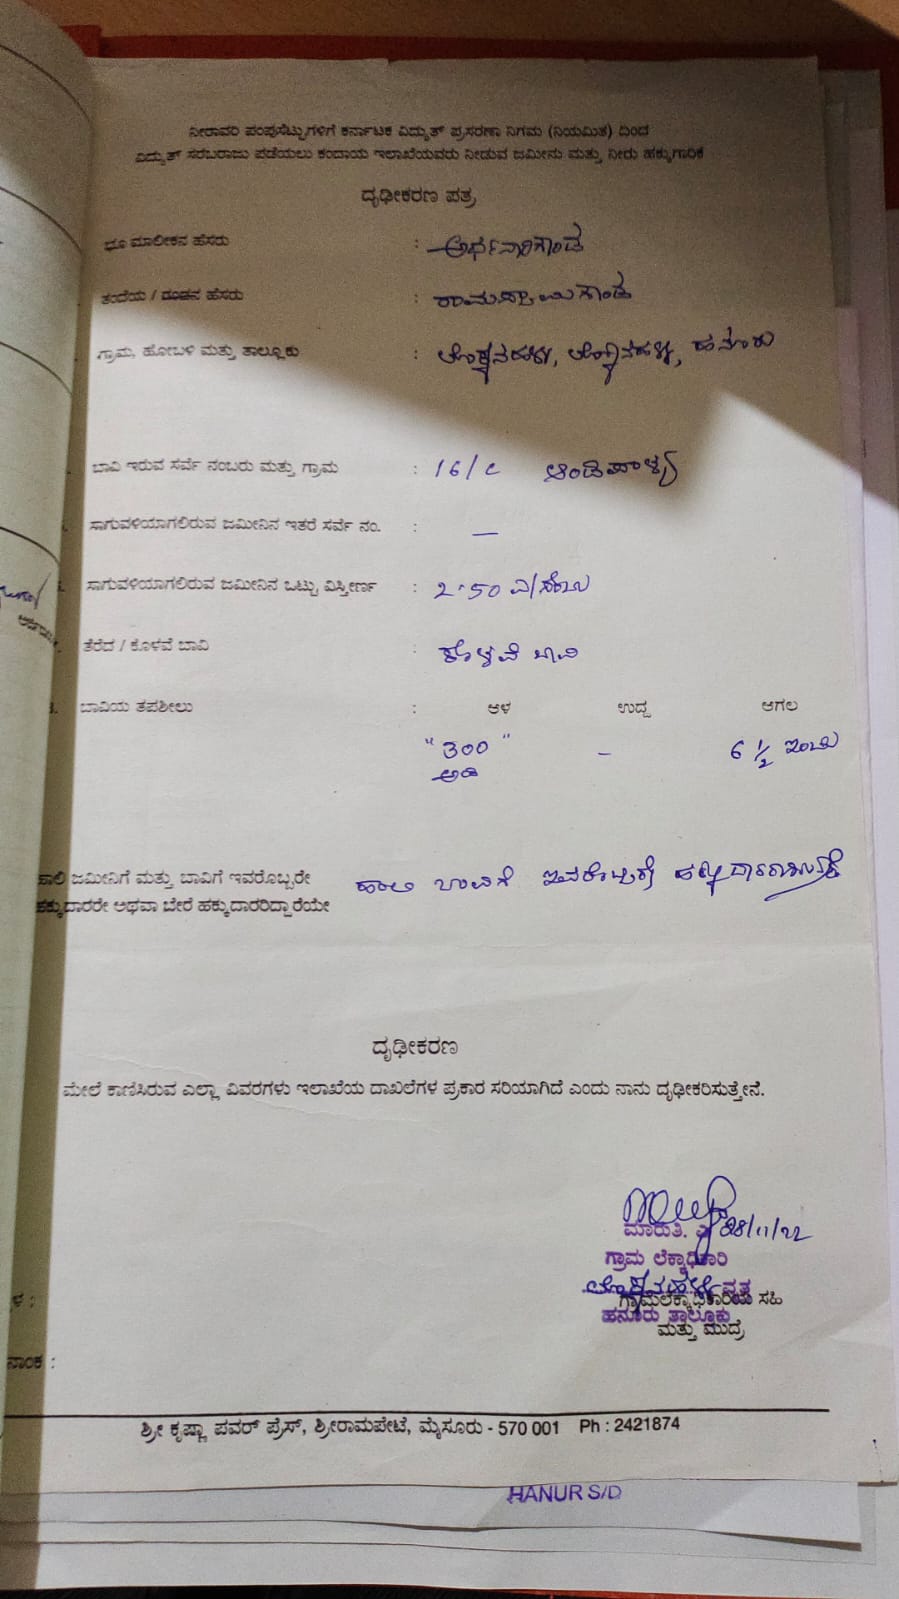 ನೀರಾವರಿ ಪಂಪುಸೆಟ್ಟುಗಳಿಗೆ ಕರ್ನಾಟಕ ವಿದ್ಯುತ್ ಪ್ರಸರಣಾ ನಿಗಮ (ನಿಯಮಿತ) ದಿಂದ
ವಿದ್ಯುತ್ ಸರಬರಾಜು ಪಡೆಯಲು ಕಂದಾಯ ಇಲಾಖೆಯವರು ನೀಡುವ ಜಮೀನು ಮತ್ತು ನೀರು ಹಕ್ಕುಗಾರಿಕೆ
ದೃಢೀಕರಣ ಪತ್ರ
ಭೂ ಮಾಲೀಕನ ಹೆಸರು : ಅರ್ಧನಾರಿಗೌಡ
ತಂದೆಯ / ಗಂಡನ ಹೆಸರು : ರಾಮಸ್ವಾಮಿಗೌಡ
ಗ್ರಾಮ, ಹೋಬಳಿ ಮತ್ತು ತಾಲ್ಲೂಕು : ಲೊಕ್ಕನಹಳ್ಳಿ, ಲೊಕ್ಕನಹಳ್ಳಿ, ಹನೂರು
ಬಾವಿ ಇರುವ ಸರ್ವೆ ನಂಬರು ಮತ್ತು ಗ್ರಾಮ : 16/ ಆಂಡಿಪಾಳ್ಯ
ಸಾಗುವಳಿಯಾಗಲಿರುವ ಜಮೀನಿನ ಇತರೆ ಸರ್ವೆ ನಂ. : —
ಸಾಗುವಳಿಯಾಗಲಿರುವ ಜಮೀನಿನ ಒಟ್ಟು ವಿಸ್ತೀರ್ಣ : 2.50 ಎ/ಸೆಂಟು
ತೆರೆದ / ಕೊಳವೆ ಬಾವಿ : ಕೊಳವೆ ಬಾವಿ
ಬಾವಿಯ ತಪಶೀಲು : ಆಳ ಉದ್ದ ಅಗಲ
"300" – 6 1/2 ಇಂಚು
ಅಡಿ
ಹಾಲಿ ಜಮೀನಿಗೆ ಮತ್ತು ಬಾವಿಗೆ ಇವರೊಬ್ಬರೇ ಹಾಲಿ ಬಾವಿಗೆ ಇವರೊಬ್ಬರೇ ಹಕ್ಕುದಾರರಾಗಿರುತ್ತಾರೆ
ಹಕ್ಕುದಾರರೇ ಅಥವಾ ಬೇರೆ ಹಕ್ಕುದಾರರಿದ್ದಾರೆಯೇ
ದೃಢೀಕರಣ
ಮೇಲೆ ಕಾಣಿಸಿರುವ ಎಲ್ಲಾ ವಿವರಗಳು ಇಲಾಖೆಯ ದಾಖಲೆಗಳ ಪ್ರಕಾರ ಸರಿಯಾಗಿದೆ ಎಂದು ನಾನು ದೃಢೀಕರಿಸುತ್ತೇನೆ.
ಮಾರುತಿ. 28/11/22
ಗ್ರಾಮ ಲೆಕ್ಕಾಧಿಕಾರಿ
ಲೊಕ್ಕನಹಳ್ಳಿ ವೃತ್ತ
ಗ್ರಾಮಲೆಕ್ಕಾಧಿಕಾರಿಯ ಸಹಿ
ಹನೂರು ತಾಲ್ಲೂಕು
ಮತ್ತು ಮುದ್ರೆ
ಶ್ರೀ ಕೃಷ್ಣಾ ಪವರ್ ಪ್ರೆಸ್, ಶ್ರೀರಾಮಪೇಟೆ, ಮೈಸೂರು - 570 001 Ph : 2421874
HANUR S/D